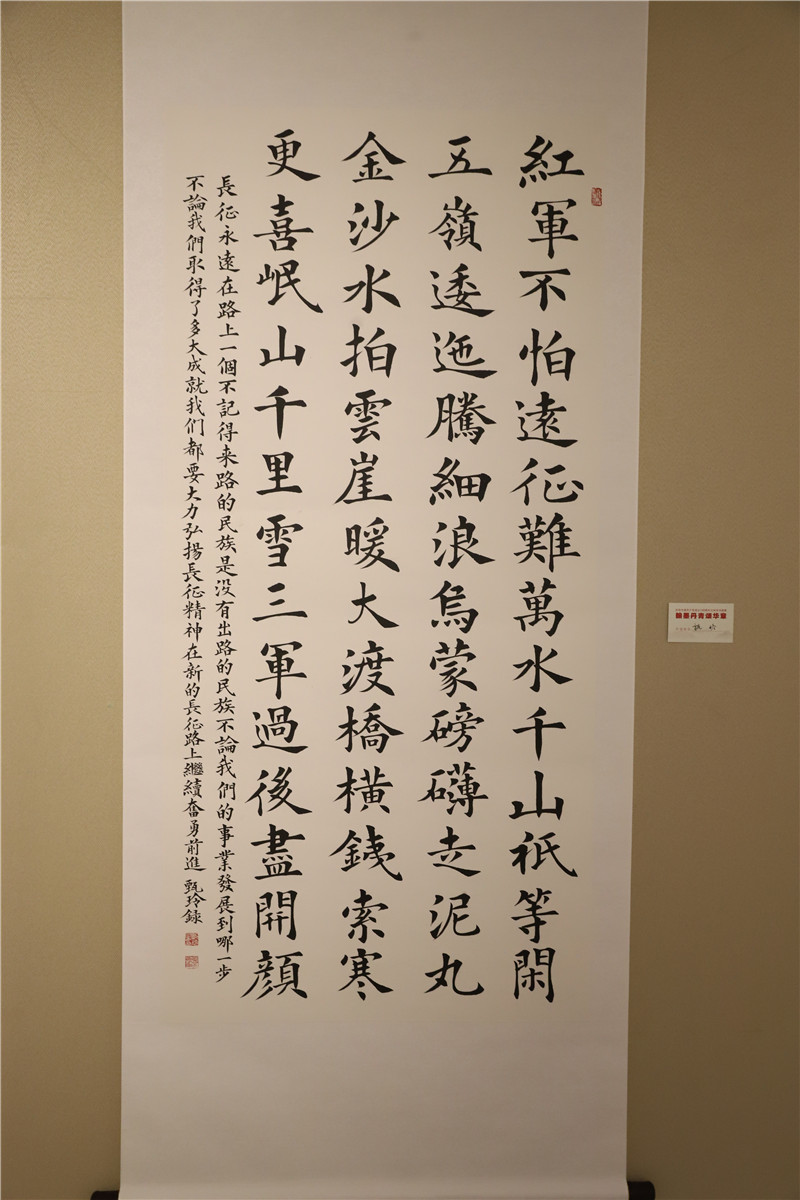 紅軍不怕遠征難萬水千山祇等閑
五嶺逶迤騰細浪烏蒙磅礴走泥丸
金沙水拍雲崖暖大渡橋橫銕索寒
更喜岷山千里雪三軍過後盡開顔
長征永遠在路上一個不記得来路的民族是没有出路的民族不論我們的事業發展到哪一步
不論我們取得了多大成就我们都要大力弘揚長征精神在新的長征路上繼續奮勇前進 甄玲録
翰墨丹青颂华章